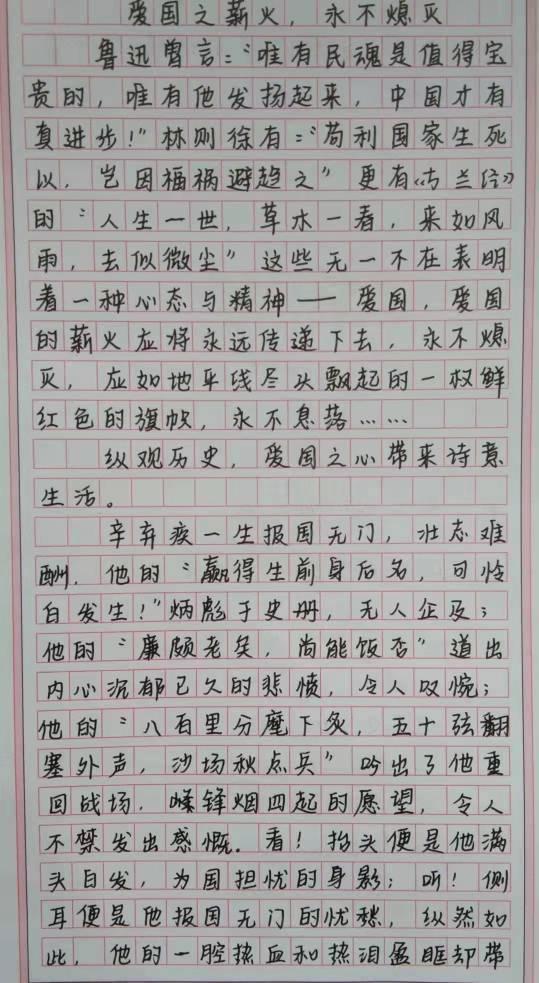 爱国之薪火，永不熄灭
鲁迅曾言："唯有民魂是值得宝
贵的，唯有他发扬起来，中国才有
真进步！"林则徐有："苟利国家生死
以，岂因福祸避趋之"更有《古兰经》
的："人生一世，草木一春，来如风
雨，去似微尘"这些无一不在表明
着一种心态与精神——爱国，爱国
的薪火应将永远传递下去，永不熄
灭，应如地平线尽头飘起的一权鲜
红色的旗帜，永不息落……
纵观历史，爱国之心带来诗意
生活。
辛弃疾一生报国无门，壮志难
酬，他的"赢得生前身后名，可怜
白发生！"炳彪于史册，无人企及；
他的"廉颇老矣，尚能饭否"道出
内心沉郁已久的悲愤，令人叹惋；
他的："八百里分麾下炙，五十弦翻
塞外声，沙场秋点兵"吟出了他重
回战场，嗪锋烟四起的愿望，令人
不禁发出感慨。看！抬头便是他满
头白发，为国担忧的身影；听！侧
耳便是他报国无门的忧愁，纵然如
此，他的一腔热血和热泪盈眶却带